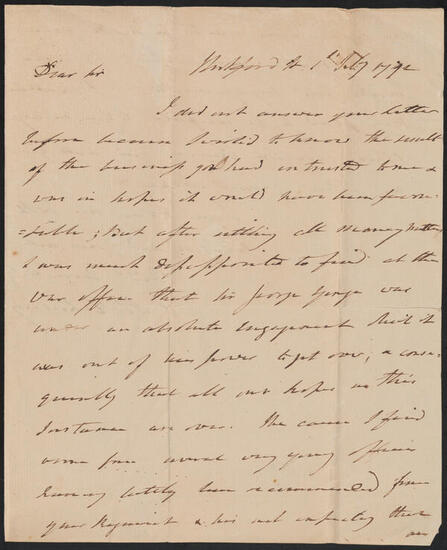 Dear Sir
Hertford St 1st Feby 1792
I did not answer your letter
before because I wish'd to know the result
of the business you had intrusted to me &
was in hopes it would have been favor=
=able; But after settling all money matters
I was much disappointed to find at the
War office that Sir George Yonge was
under an absolute engagement that it
was out of his power to get over, & conse=
quently that all our hopes in this
Instance are over. The cause I find
arose from several very young officers
having lately been recommended from
your Regiment & his not expecting there